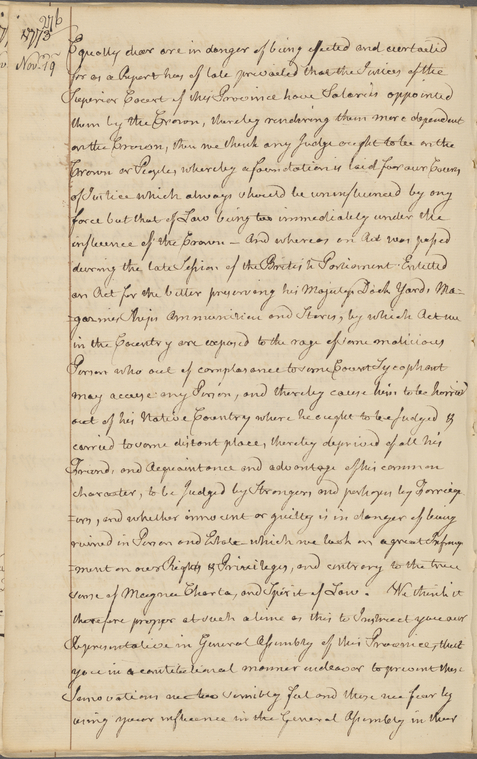 276
1773
Nov.r 19
Equally dear are in danger of being effected and curtailed
for as a Report has of late prevailed that the Justices of the
Superior Court of this Province have Salaries appointed
them by the Crown, thereby rendering them more dependent
on the Crown, than we think any Judge ought to be on the
Crown or People, whereby a foundation is laid for our Courts
of Justice which always should be uninfluenced by any
force but that of Law being too immediately under the
influence of the Crown – And whereas an Act was passed
during the late Session of the British Parliament Entitled
an Act for the better preserving his Majestys Dock Yards Ma=
=gazines Ships Ammunition and Stores, by which Act we
in the Country are exposed to the rage of some malicious
Person who out of complasance to some Court Sycophant
may accuse any Person, and thereby cause him to be horried
out of his Native Country where he ought to be Judged &
carried to some distant place, thereby deprived of all his
Friends, and Acquaintance and advantage of his common
character, to be Judged by Strangers and perhaps by Forriegn
=ors, and whether innocent or guilty is in danger of being
ruined in Person and Estate which we look on a great Infring
=ment on our Rights & Privileges, and contrary to the true
sense of Magna Charta, and Spirit of Law. We think it
therefore propper at such a time as this to Instruct you our
Representative in General Assembly of this Province, that
you in a contitutional manner indeavor to prevent these
Innovations we too sensibly feel and those we fear by
using your influence in the General Assembly in their